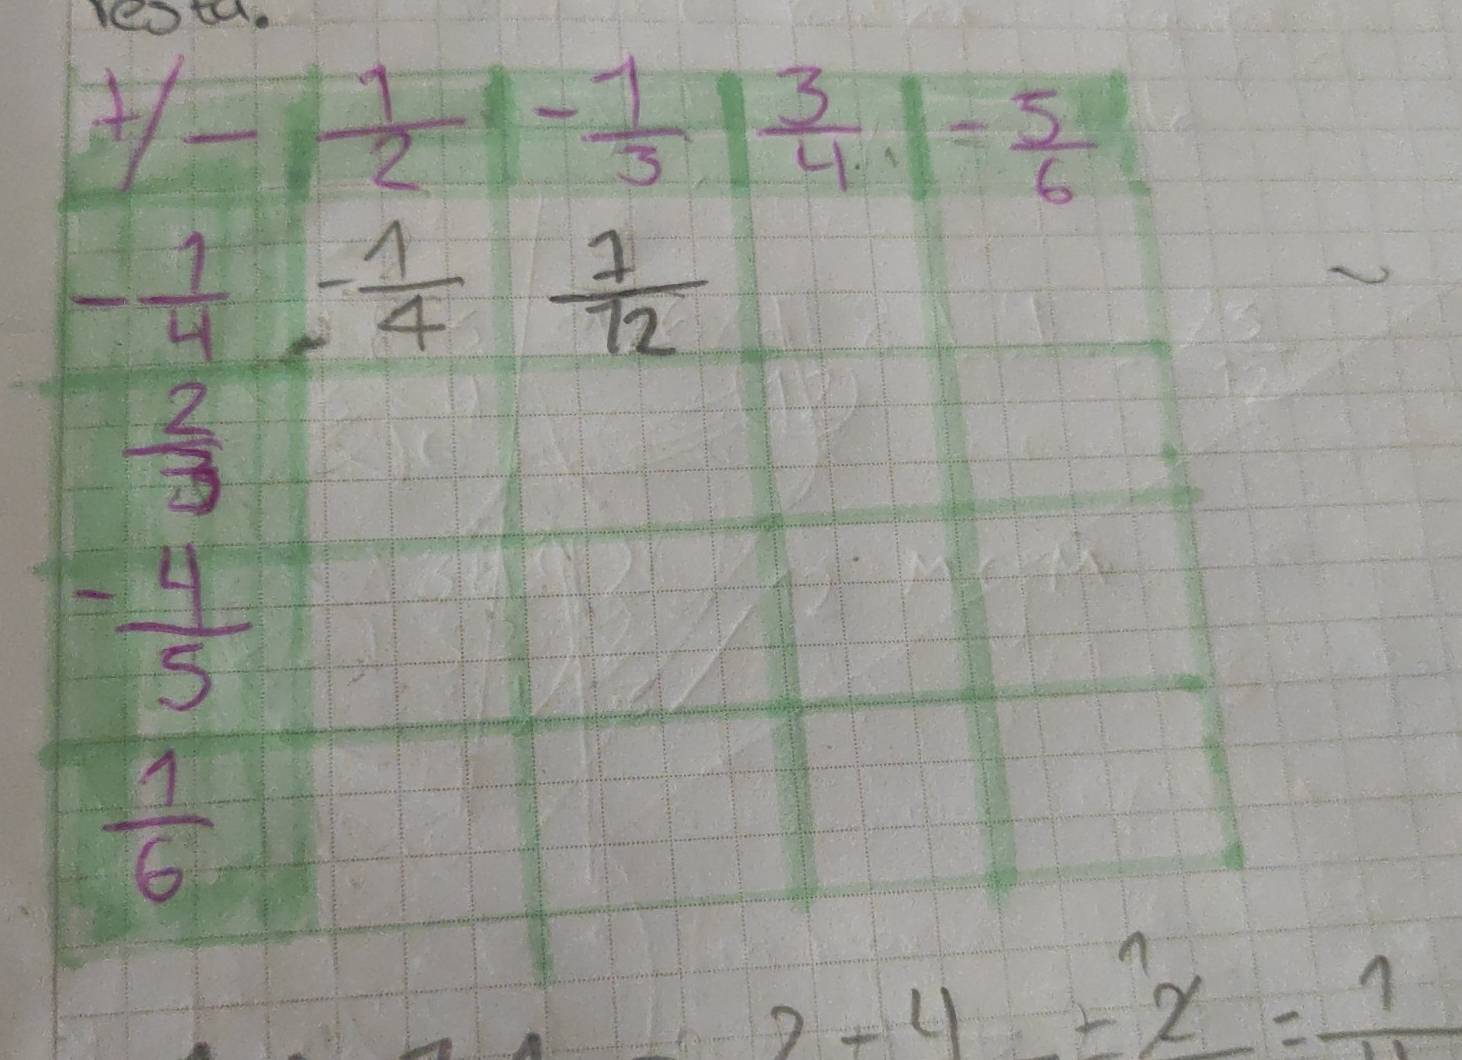 resta.
+/- 1/2 -1/3 3/4 -5/6
-1/4 -1/4 7/12
2/3
-4/5
1/6
2 + 4 ÷ 2 = 1